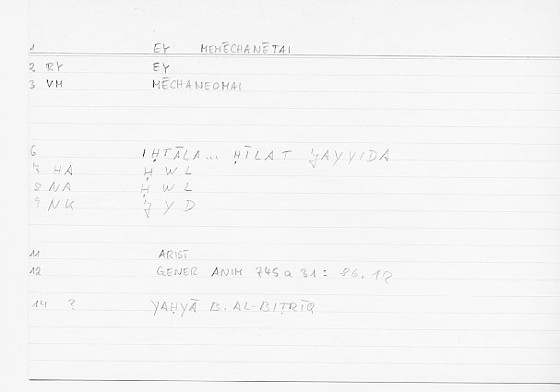 1 EY MEMĒCHANĒTAI
2 RY EY
3 VM MĒCHANEOMAI
6 IḤTĀLA... ḤĪLAT ǦAYYIDA
7 HA Ḥ W L
8 NA Ḥ W L
9 NK Ǧ Y D
11 ARIST
12 GENER ANIM 745 a 31 : 86.12
14 ? YAḤYĀ B. AL-BIṬRĪQ